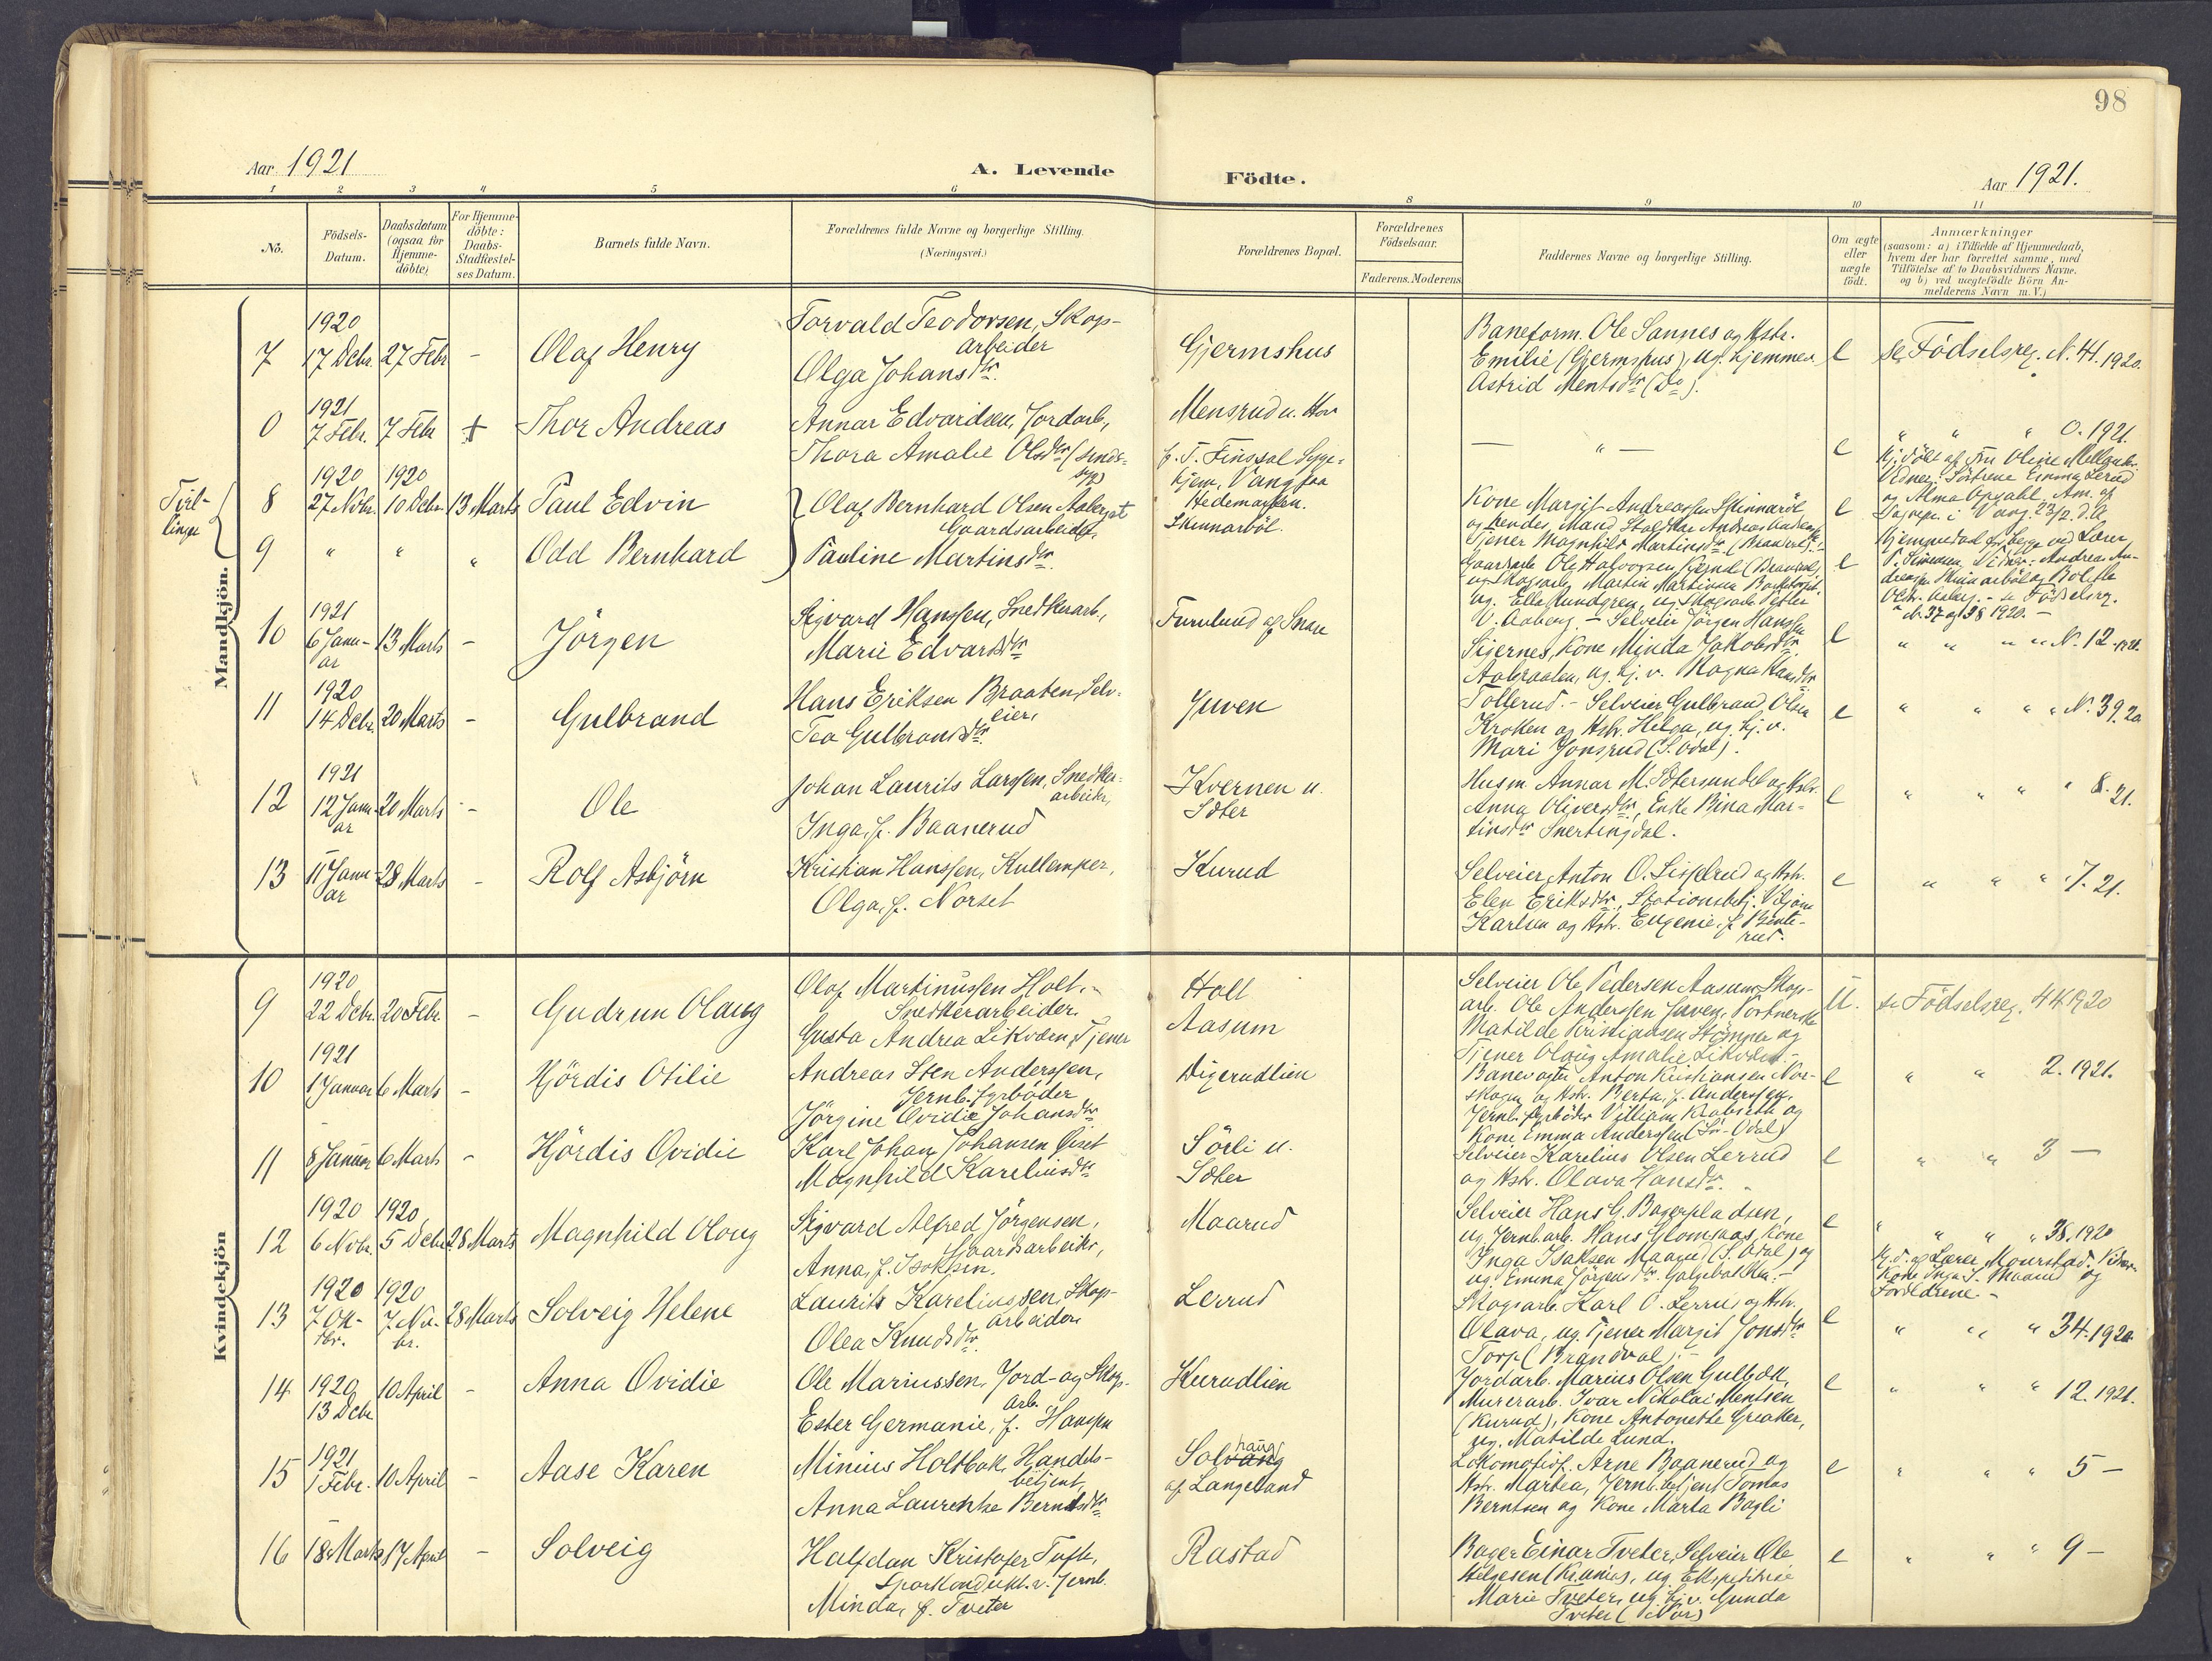 98
Aar 1921
A. Levende
Födte.
Aar 1921.
1 2 3 4 5 6 8 9 10 11
No.
Födsels-
Datum.
Daabsdatum
(ogsaa for
Hjemme-
döbte)
For Hjemme-
döbte:
Daabs-
Stadfæstel-
ses Datum.
Barnets fulde Navn.
Forældrenes fulde Navne og borgerlige Stilling.
(Næringsvei.)
Forældrenes Bopæl.
Forældrenes
Födselsaar.
Faderens. Moderens.
Faddernes Navne og borgerlige Stilling.
Om ægte
eller
uægte
födt.
Anmærkninger
(saasom: a) i Tilfælde af Hjemmedaab,
hvem der har forrettet samme, med
Tilföielse af to Daabsvidners Navne.
og b) ved uægtefödte Börn An-
melderens Navn m. V.)
Mandkjön.
7
1920
17 Debr.
27 Febr
-
Olaf Henry
Torvald Teodorsen, Skogs-
arbeider
Olga Johansdtr.
Gjermshus
Baneform. Ole Sannes og Hstr.
Emilie (Gjermshus), ug. hjemmev.
Astrid Mentsdtr (Do).
e
se Födselsreg. N. 41. 1920.
0
1921
7 Febr.
7 Febr
+
Thor Andreas
Annar Edvardsen, Jordarb,
Thora Amalie Olsdtr
Mensrud u. Hov
— " —
e
" " " 0. 1921.
Tvil-
linge
8
1920
27 Nvbr.
1920
10 Debr
13 Marts
Paul Edvin
Olaf Bernhard Olsen Aaberget
Gaardsarbeider,
Pauline Martinsdtr.
Hjem, Vang paa
Hedemarken.
Skinnarböl.
Kone Margit Andreassen Skinnaröl
e
9
"
"
"
Odd Bernhard
e
N. 37 og 38 1920. -
10
1921
6 Janu-
ar
13 Marts
-
Jörgen
Sigvard Hanssen, Snedkerarb,
Marie Edvardsdtr
Furulund af Snare
V. Aaberg. - Selveier Jörgen Hanssen
Sigernes, Kone Minda Jakobsdtr.
e
" " " " N. 12 1921.
11
1920
14 Debr.
20 Marts
-
Gulbrand
Hans Eriksen Braaten, Selv-
eier,
Tea Gulbrandsdtr.
Juven
Tollerud. - Selveier Gulbrand Olsen
Kroken og Hstr. Helga, ug. hj. v.
Mari Jonsrud (S. Odal).
e
" " " " N. 39. 20
12
1921
12 Janu-
ar
20 Marts
-
Ole
Johan Laurits Larssen, Snedker-
arbeider,
Inga, f. Baanerud
Kvernen u.
Sæter
Husm. Annar M. Sætersmdel og Hstr.
Anna Oliversdtr., Enke Rina Mar-
tinsdtr Snertingdal.
e
" " " " 8. 21.
13
11 Janu-
ar
28 Marts
-
Rolf Asbjörn
Kristian Hanssen, Kullemper,
Olga, f. Norset
Kurud
Selveier Anton O. Sisselrud og Hstr.
Elen Eriksdtr., Stationsbetj. Viljam
Karlsen og Hstr. Eugenie, f. Bente-
rud.
e
" " " 7. 21.
Kvindekjön
9
1920
22 Debr.
20 Febr.
-
Gudrun Olaug
Olaf Martinussen Holt,
Snedkerarbeider.
Gusta Andrea Likvern, Tjener
Holt
Aasum
Selveier Ole Pedersen Aasum, Skogs-
arb. Ole Anderssen Juven, Portnerske
Matilde Kristiansen Stömner og
Tjener Olaug Amalie Likvern. -
U.
se Födselsreg. 44 1920
10
1921
1 Januar
6 Marts
-
Hjördis Otilie
Andreas Sten Anderssen,
Jernb. fyrböder
Jörgine Ovidie Johansdtr
Digerudlien
Banevogter Anton Kristiansen Nor-
skogen og Hstr. Berta, f. Anderssen,
Jernb. fyrböder Villiam Krabseth og
Kone Emma Anderssen (Sö-Odal)
e
" " 2. 1921.
11
8 Januar
6 Marts
-
Hjördis Ovidie
Karl Johan Johansen Öiset
Magnhild Kareliusdtr
Sörli u.
Sæter
Selveier Karelius Olsen Lerrud
og Hstr. Olava Hansdtr.
e
" " 3 —
12
1920
6 Nvbr.
1920
5 Debr
28 Marts
Magnhild Olaug
Sigvard Alfred Jörgensen,
Gaardsarbeider,
Anna, f. Isaksen.
Maarud
Selveier Hans G. Bagerpladsen,
ug. Jernb.arb. Hans Glomsaas, Kone
Inga Isaksen Maarud (S. Odal) og
ug. Emma Jörgensdtr. Galgebakken. -
e
" " " " 38. 1920
Kone Inga I. Maarud og
Forældrene. -
13
1920
7 Ok-
tbr.
1920
7 No-
br.
28 Marts
Solveig Helene
Laurits Kareliussen, Skogs-
arbeider
Olea Knudsdtr.
Lerrud
Skogsarb. Karl O. Lerrud og Hstr.
Olava, ug. Tjener Margit Jonsdtr
Torp (Brandval). -
e
" " " 34. 1920
14
1920
13 Debr
10 April
-
Anna Ovidie
Ole Mariussen, Jord- og Skogs-
arb.
Ester Germanie, f. Hanssen
Kurudlien
Jordarb. Marius Olsen Gulbæk,
Murerarb. Ivar Nikolai Mentsen
(Kurud), Kone Antonette Greaker,
ug. Matilde Lund.
e
" " " 12. 1921.
15
1921
1 Febr.
10 April
-
Aase Karen
Minius Holtbak, Handels-
betjent,
Anna Laurentse Berntsdtr
Solhaug
af Langeland
Lokomotivf. Arne Baanerud og
Hstr. Martea, Jernb. betjent Tomas
Berntsen og Kone Marta Bogli
e
" " " 5 —
16
18 Marts
17 April
-
Solveig
Halfdan Kristofer Tufte,
Sporkondukt. v. Jernb.
Minda, f. Tveter
Rastad
Bager Einar Tveter, Selveier Ole
Helgesen (Kr.ania), ug. Ekspeditrise
Marie Tveter, ug. hj. v. Gunda
Tveter (Nor)
e
" " " 9 —